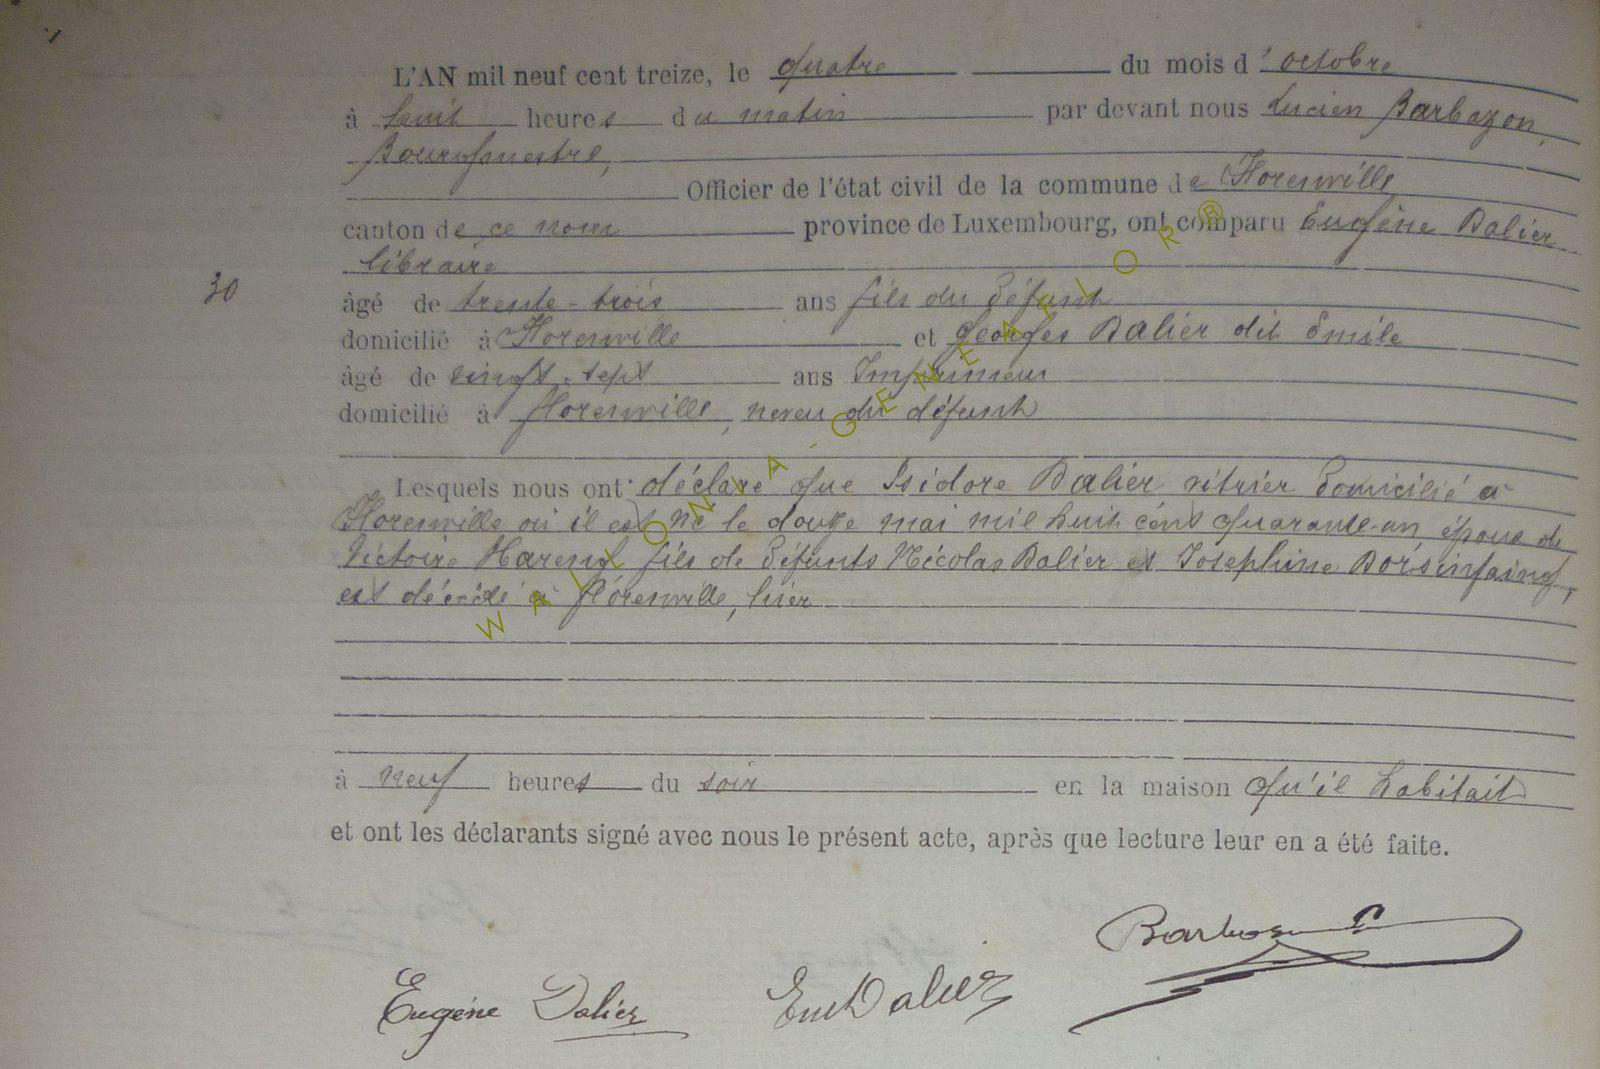 L'AN mil neuf cent treize, le quatre du mois d'octobre
à huit heures du matin par devant nous Lucien Barbazon,
Bourgmestre,
Officier de l'état civil de la commune de Florenville
canton de ce nom province de Luxembourg, ont comparu Eugène Dalier
libraire
30
âgé de trente-trois ans fils du défunt
domicilié à Florenville et Georges Dalier dit Emile
âgé de vingt-sept ans Imprimeur
domicilié à Florenville, neveu du défunt
Lesquels nous ont déclaré que Isidore Dalier vitrier domicilié à
Florenville où il est né le douze mai mil huit cent quarante-un époux de
Victoire Hareng fils de défunts Nicolas Dalier et Josephine Dorsinfaing,
est décédé à Florenville, hier
à neuf heures du soir en la maison qu'il habitait
et ont les déclarants signé avec nous le présent acte, après que lecture leur en a été faite.
Barbazon
Eugène Dalier Em Dalier
WALLONIA-GENEALOR®